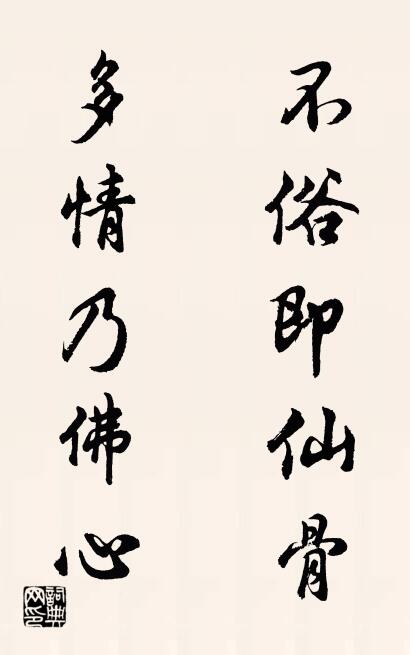 不俗即仙骨
多情乃佛心
詞典网印